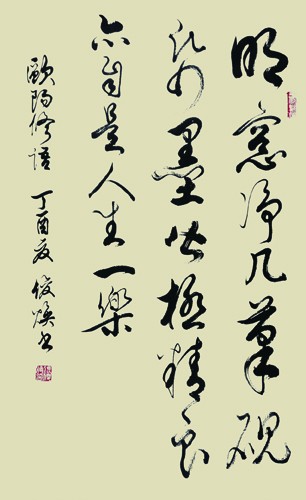 明窓净几筆硯
紙墨皆極精良
亦自是人生一樂
歐陽修語 丁酉夏 俊煥书